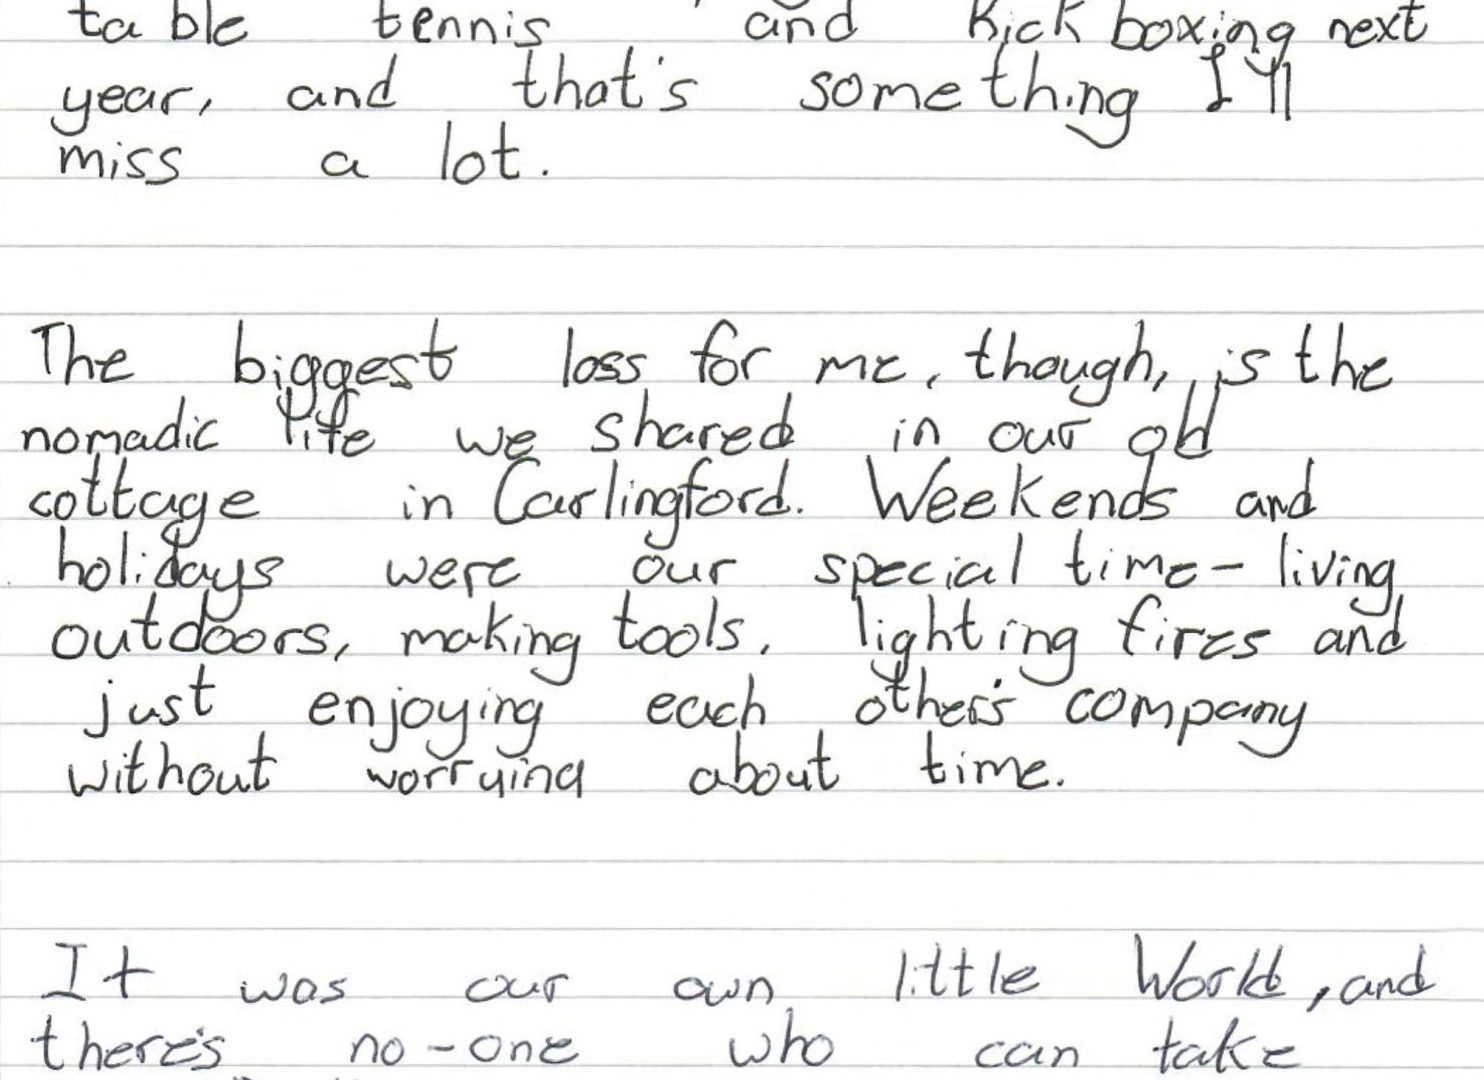 table tennis and kick boxing next
year, and that's something I'll
miss a lot.
The biggest loss for me, though, is the
nomadic life we shared in our old
cottage in Carlingford. Weekends and
holidays were our special time - living
outdoors, making tools, lighting fires and
just enjoying each other's company
without worrying about time.
It was our own little World, and
there's no-one who can take